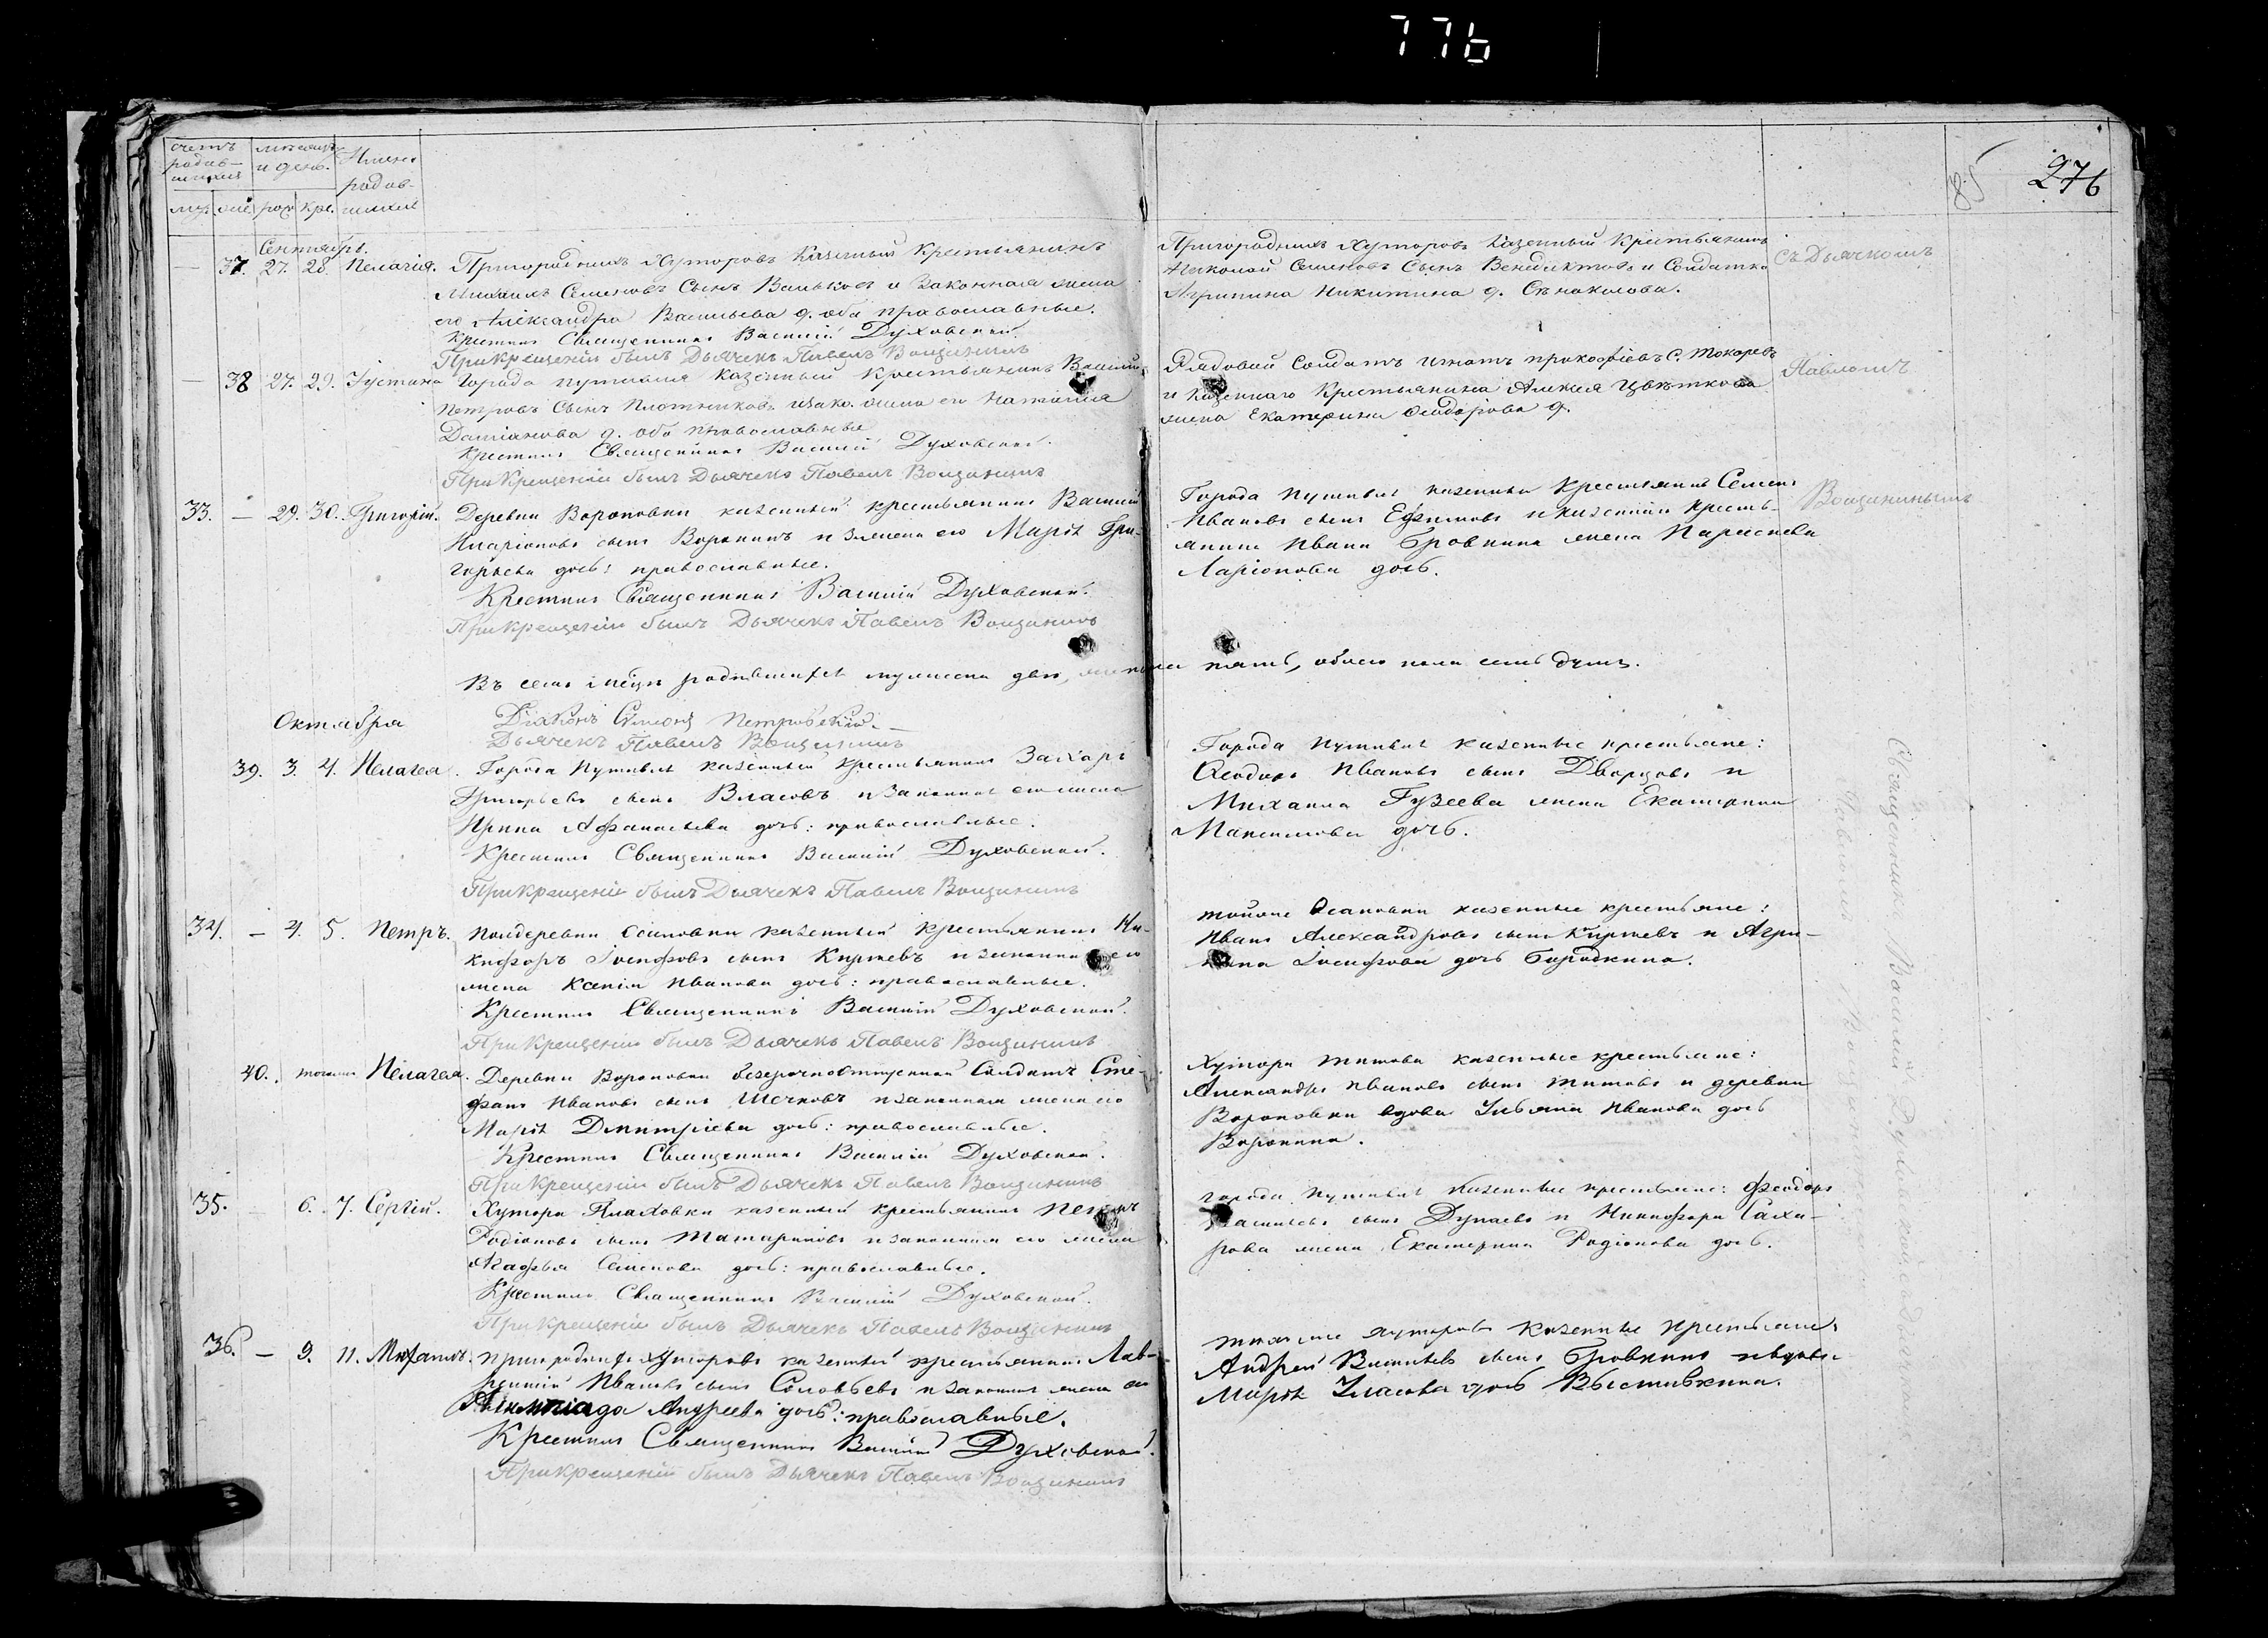 776
85 276
счетъ родив-шихся
мѣсяцъ и день.
Имена родив-шихся
муж. жен. рож. кре.
Сентябрь.
— 37. 27. 28. Пелагія. Пригородныхъ Хуторовъ казенный крестьянинъ
Михаилъ Семеновъ Сынъ Вальковъ и Законная жена
его Александра Васильева д. оба православные.
Крестилъ Священникъ Василій Духовской
При Крещеніи былъ Дьячекъ Павелъ Вощининъ
Пригородныхъ Хуторовъ казенный Крестьянинъ
Николай Семеновъ Сынъ Венедиктовъ и Солдатка
Агрипина Никитина д.
Съ Дьячкомъ
— 38 27. 29. Іустина Города путивля казенный крестьянинъ Василій
Петровъ Сынъ Плотниковъ и зако. жена его Наталія
Даміанова д. оба православные
Крестилъ Священникъ Василій Духовской.
При Крещеніи былъ Дьячекъ Павелъ Вощининъ
Рядовой Солдатъ Игнатъ прокофіевъ С. Токаревъ
и казеннаго Крестьянина Алексея Цвѣткова
жена Екатерина Феодорова д.
Павломъ
33. — 29. 30. Григорій. Деревни Вороновки казенный крестьянинъ Василій
Иларіоновъ сынъ Воронинъ и з. жена его Марія Гри-
горьева дочь: православные.
Крестилъ Священникъ Василій Духовской.
При Крещеніи былъ Дьячекъ Павелъ Вощининъ
Города Путивля казенный Крестьянинъ Семенъ
Ивановъ сынъ Ефимовъ и казенный кресть-
янина Ивана Бровкина жена Параскева
Ларіонова дочь.
Вощининымъ
Въ семъ м-цѣ родившихся мужеска два, женска пять, обоего пола семь душъ.
Діаконъ Симеонъ Петровскій.
Дьячекъ Павелъ Вощининъ
Октября
39. 3. 4. Пелагея. Города Путивля казенный крестьянинъ Захаръ
Григорьевъ сынъ Власовъ и Законная его жена
Ирина Афанасьева дочь: православные.
Крестилъ Священникъ Василій Духовской.
При Крещеніи былъ Дьячекъ Павелъ Вощининъ
Города Путивля казенные крестьяне:
Феодоръ Ивановъ сынъ Дворцовъ и
Михаила Гузеева жена Екатерина
Максимова дочь.
34. — 4. 5. Петръ. Полдеревни Осиповки казенный крестьянинъ Ни-
кифоръ Іосифовъ сынъ Киржевъ и законная его
жена Ксенія Иванова дочь: православные.
Крестилъ Священникъ Василій Духовской.
При Крещеніи былъ Дьячекъ Павелъ Вощининъ
тойже Осиповки казенные крестьяне:
Иванъ Александровъ сынъ Киржевъ и Агри-
пина Іосифова дочь Бородкина.
40. Пелагея. Деревни Вороновки безсрочноотпускной Солдатъ Сте-
фанъ Ивановъ сынъ Шечковъ и законная жена его
Марія Димитріева дочь: православные.
Крестилъ Священникъ Василій Духовской.
При Крещеніи былъ Дьячекъ Павелъ Вощининъ
Хутора Титова казенные крестьяне:
Александръ Ивановъ сынъ Титовъ и деревни
Вороновки вдова Ульяна Иванова дочь
Воронина.
35. 6. 7. Сергій. Хутора Плаховки казенный крестьянинъ
Родіоновъ сынъ Татариновъ и законная его жена
Агафья Семенова дочь: православные.
Крестилъ Священникъ Василій Духовской.
При Крещеніи былъ Дьячекъ Павелъ Вощининъ
города Путивля казенные крестьяне: Феодоръ
Васильевъ сынъ Дунаевъ и Никифора Саха-
рова жена Екатерина Родіонова дочь.
36. — 9. 11. Михаилъ. Пригородныхъ хуторовъ казенный крестьянинъ Лав-
рентій Ивановъ сынъ Соловьевъ и законная жена его
Андреева дочь: православные.
Крестилъ Священникъ Василій Духовской.
При крещеніи былъ Дьячекъ Павелъ Вощининъ
хуторовъ казенные крестьяне:
Андрей Васильевъ сынъ Бровкинъ и вдова
Марія Уласова дочь
Священникъ Василій Духовской съ дьячкомъ
Павломъ Вощининымъ